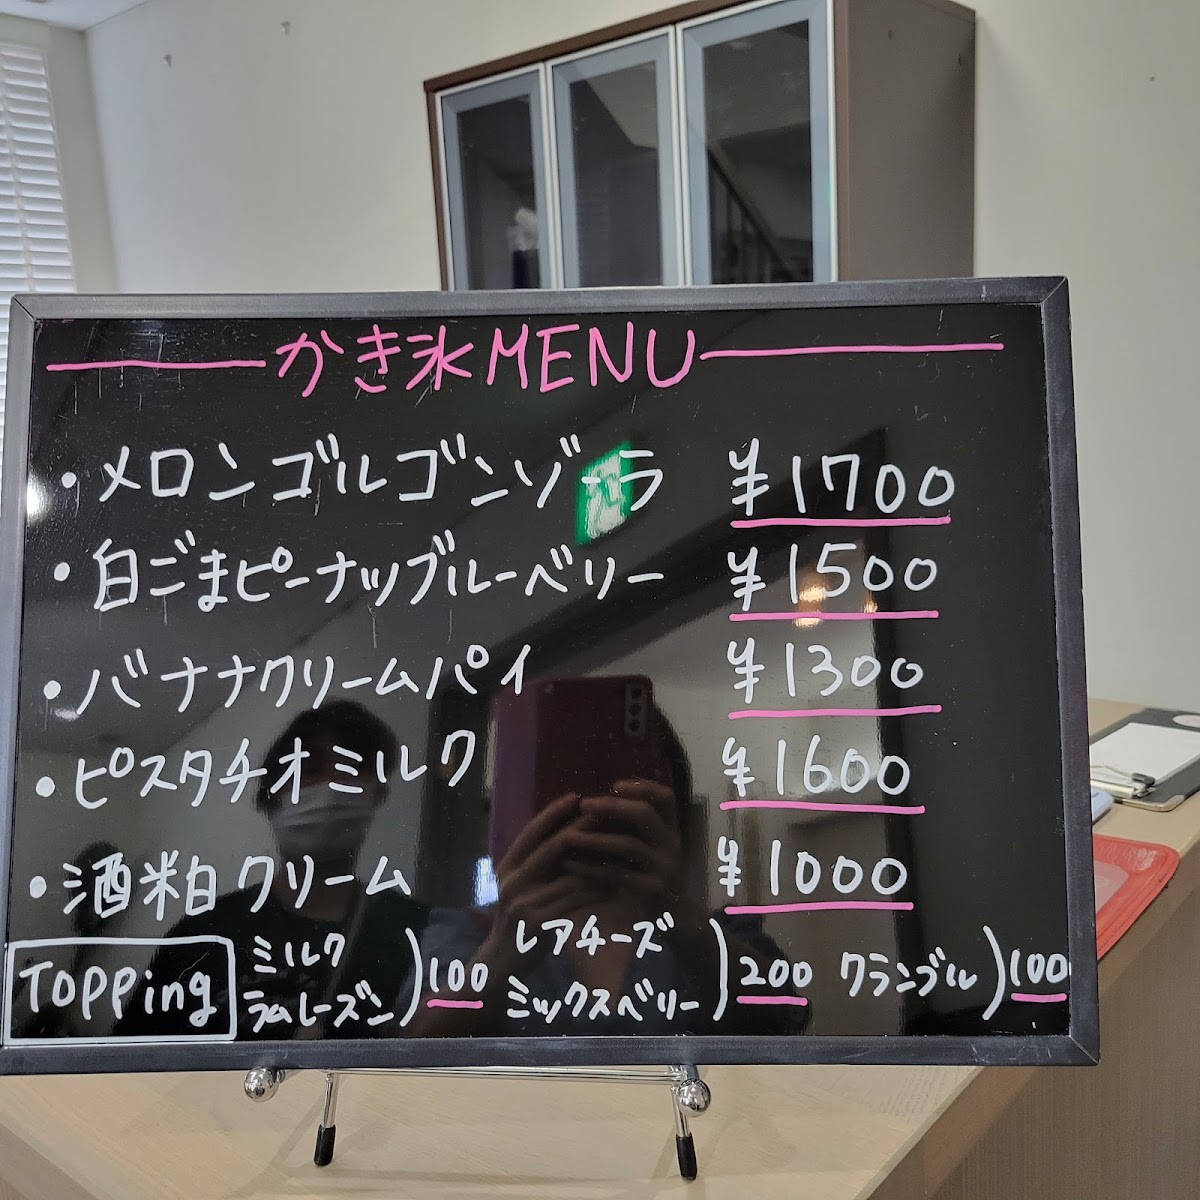 かき氷MENU
・メロンゴルゴンゾーラ ¥1700
・白ごまピーナッツブルーベリー ¥1500
・バナナクリームパイ ¥1300
・ピスタチオミルク ¥1600
・酒粕クリーム ¥1000
Topping
ミルク
ラムレーズン
) 100
レアチーズ
ミックスベリー
) 200
クランブル ) 100